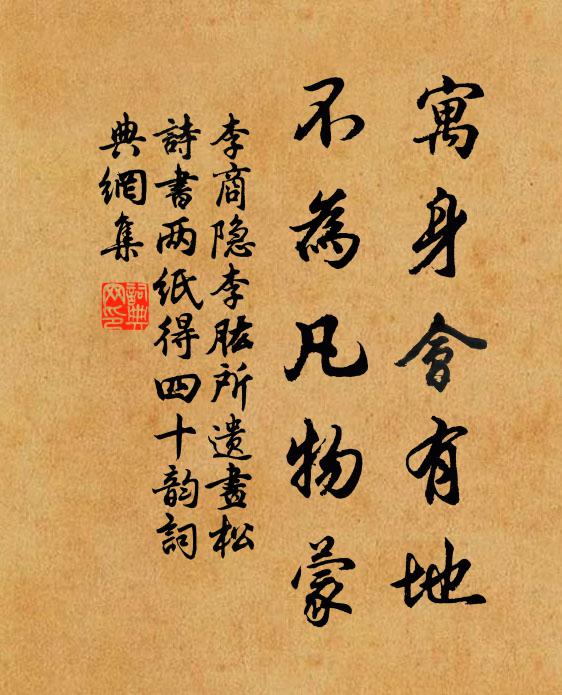 寓身會有地
不為凡物蒙
李商隐李肱所遺畫松
詩書两紙得四十韵詞
典網集
詞典网印